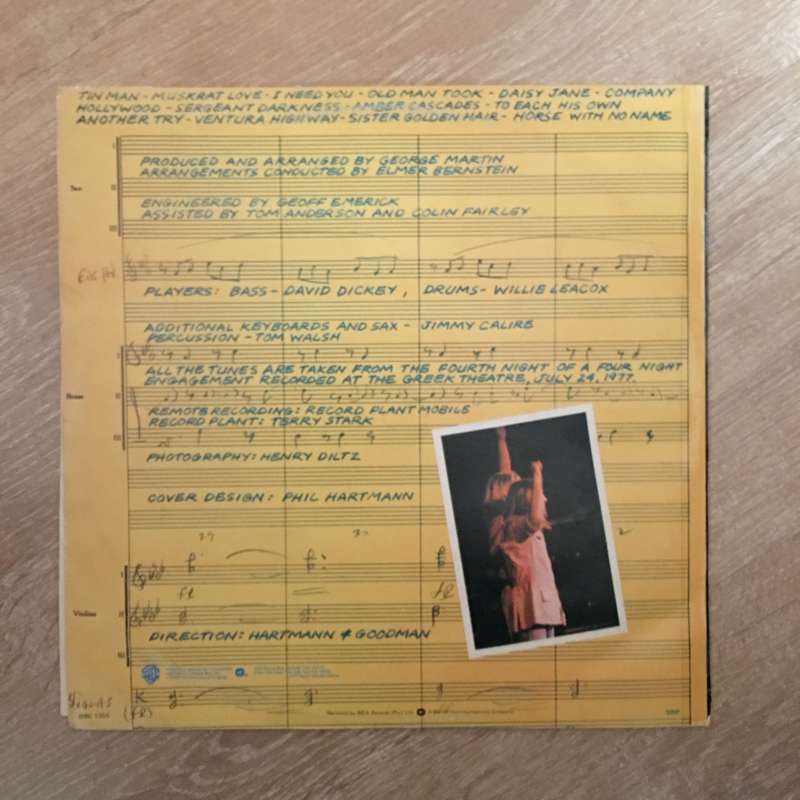 TIN MAN - MUSKRAT LOVE - I NEED YOU - OLD MAN TOOK - DAISY JANE - COMPANY
HOLLYWOOD - SERGEANT DARKNESS - AMBER CASCADES - TO EACH HIS OWN
ANOTHER TRY - VENTURA HIGHWAY - SISTER GOLDEN HAIR - HORSE WITH NO NAME
I
PRODUCED AND ARRANGED BY GEORGE MARTIN
ARRANGEMENTS CONDUCTED BY ELMER BERNSTEIN
II
ENGINEERED BY GEOFF EMERICK
ASSISTED BY TOM ANDERSON AND COLIN FAIRLEY
III
PLAYERS: BASS - DAVID DICKEY, DRUMS - WILLIE LEACOX
ADDITIONAL KEYBOARDS AND SAX - JIMMY CALIRE
PERCUSSION - TOM WALSH
I
ALL THE TUNES ARE TAKEN FROM THE FOURTH NIGHT OF A FOUR NIGHT
ENGAGEMENT RECORDED AT THE GREEK THEATRE, JULY 24, 1977.
II
REMOTE RECORDING: RECORD PLANT MOBILE
RECORD PLANT: TERRY STARK
III
PHOTOGRAPHY: HENRY DILTZ
COVER DESIGN: PHIL HARTMANN
I
Violins II
DIRECTION: HARTMANN & GOODMAN
III